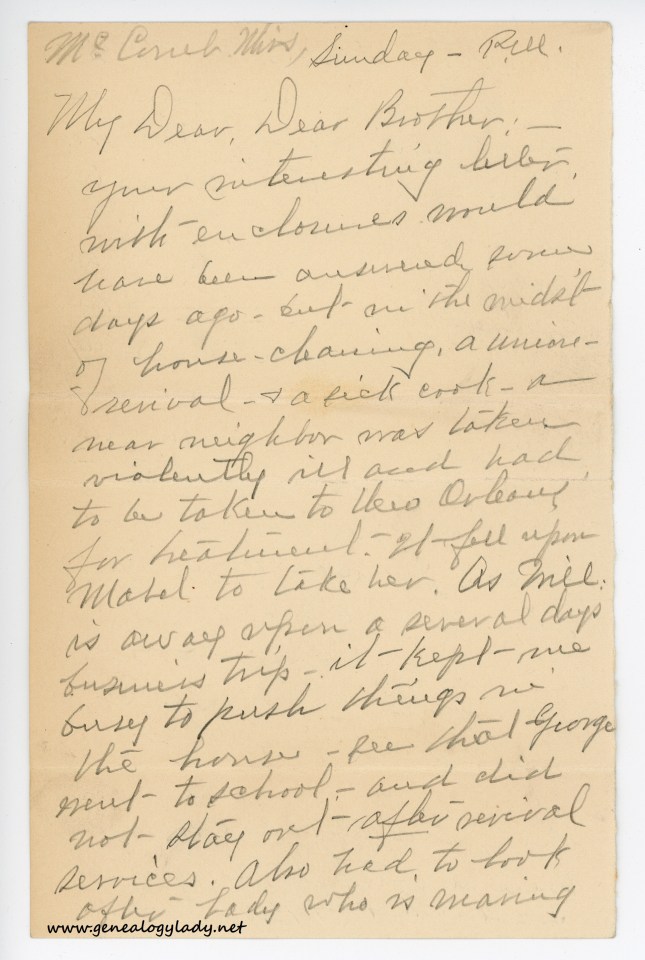 Mc Comb Miss, Sunday - P.M.
My Dear, Dear Brother: -
your interesting letter
with enclosures would
have been answered some
days ago - but in the midst
of house-cleaning, a union-
revival - & a sick cook - a
near neighbor was taken
violently ill and had
to be taken to New Orleans
for treatment. It fell upon
Mabel to take her. As Will
is away upon a several days
business trip - it kept me
busy to push things in
the house - see that George
went to school, - and did
not stay out after revival
services. Also had to look
after lady who is making
www.genealogylady.net